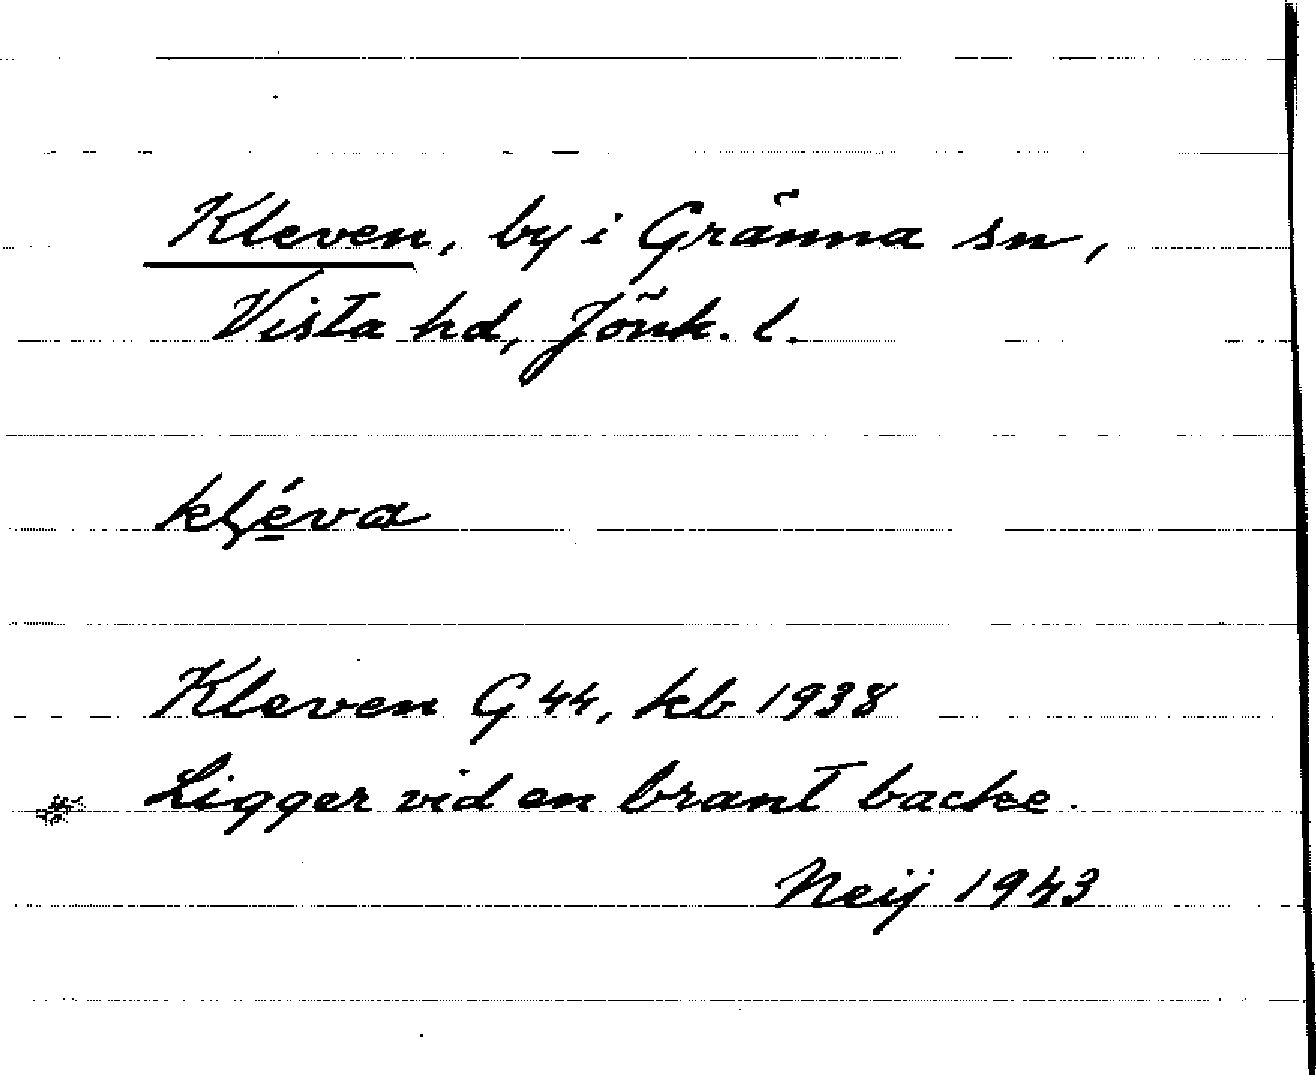 Kleven, by i Gränna sn,
Vista hd, Jönk. l.
kléva
Kleven G 44, kb 1938
Ligger vid en brant backe.
Neij 1943